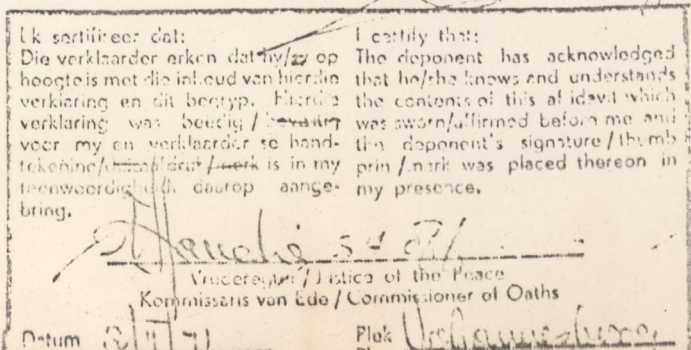 Ek sertifiseer dat:
Die verklaarder erken dat hy/sy op
hoogte is met die inhoud van hierdie
verklaring en dit begryp. Hierdie
verklaring was beëdig / bevestig
voor my en verklaarder se hand-
tekening/duimafdruk/merk is in my
teenwoordigheid daarop aange-
bring.
I certify that:
The deponent has acknowledged
that he/she knows and understands
the contents of this affidavit which
was sworn/affirmed before me and
the deponent's signature / thumb
print/mark was placed thereon in
my presence.
Vrederegter / Justice of the Peace
Kommissaris van Ede / Commissioner of Oaths
Datum
Plek Johannesburg